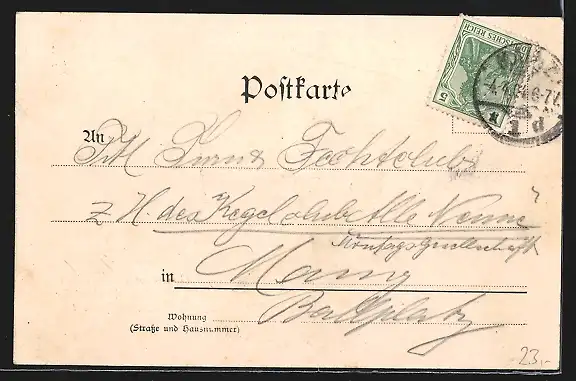 DEUTSCHES REICH
5
1 d
Postkarte
An
Turn & Fechtclub
z. H. des Kegelclub Alle Neune"
Montagsgesellschaft
in Mainz
Ballplatz
Wohnung
(Straße und Hausnummer)
23,-